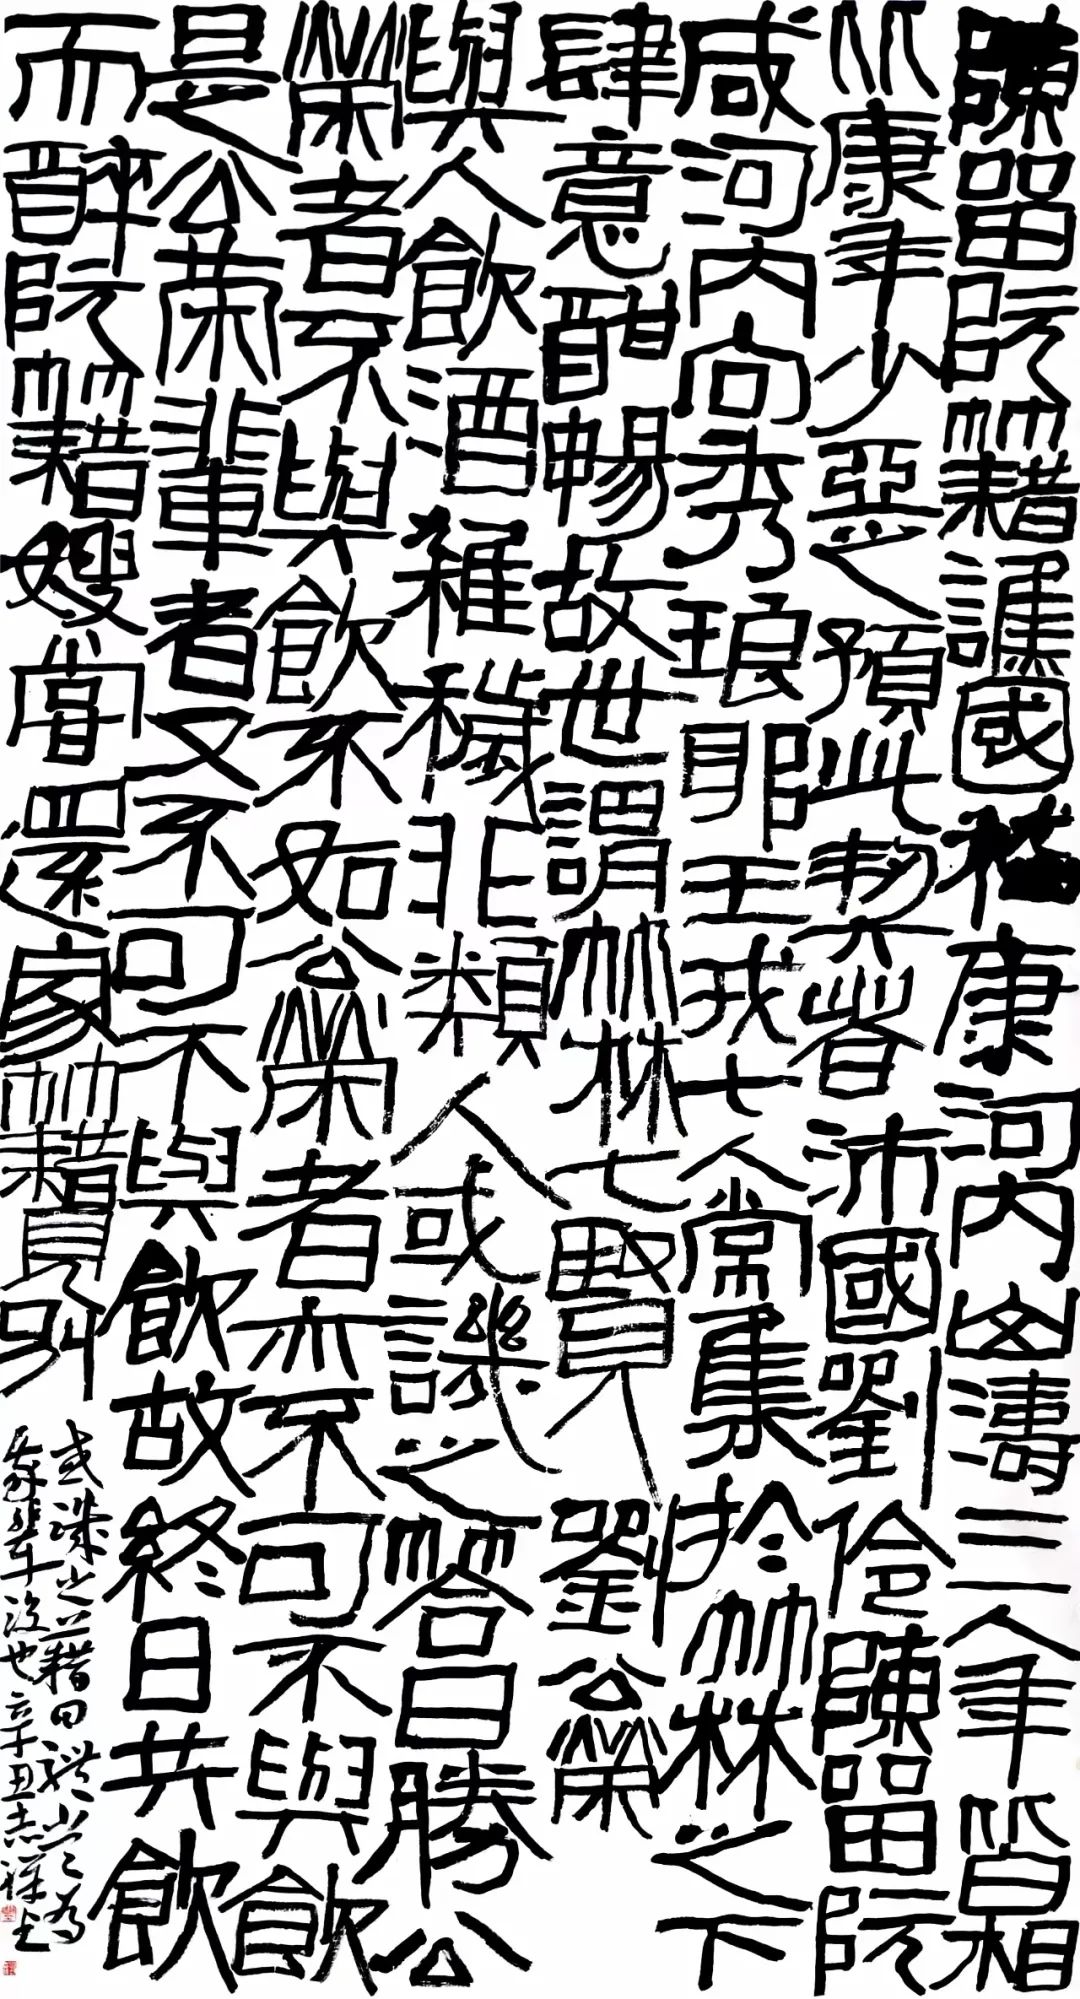 陳留阮籍譙國嵇康河内山濤三人年皆相
比康年少亞之預此契者沛國劉伶陳留阮
咸河内向秀琅耶王戎七人常集於竹林之下
肆意酣暢故世謂竹林七賢 劉公榮
與人飲酒雜穢非類人或譏之答曰勝公
榮者不與飲不如公榮者亦不可不與飲
是公榮輩者又不可不與飲故終日共飲
而醉阮籍嫂嘗還家籍見别
或譏之籍曰禮豈為
我輩設也辛丑志